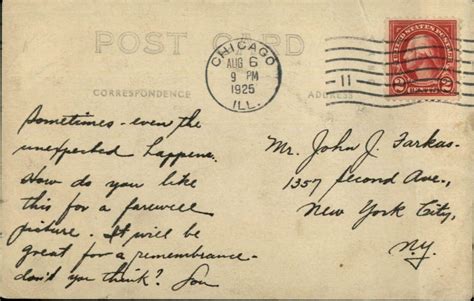 POST CARD
CHICAGO
AUG 6
9 PM
1925
ILL.
11
UNITED STATES POSTAGE
2 CENTS 2
CORRESPONDENCE
ADDRESS
Sometimes - even the
unexpected happens.
How do you like
this for a farewell
picture. It will be
great for a remembrance -
don't you think? Lou
Mr. John J. Farkas -
1357 Second Ave.,
New York City,
N.Y.